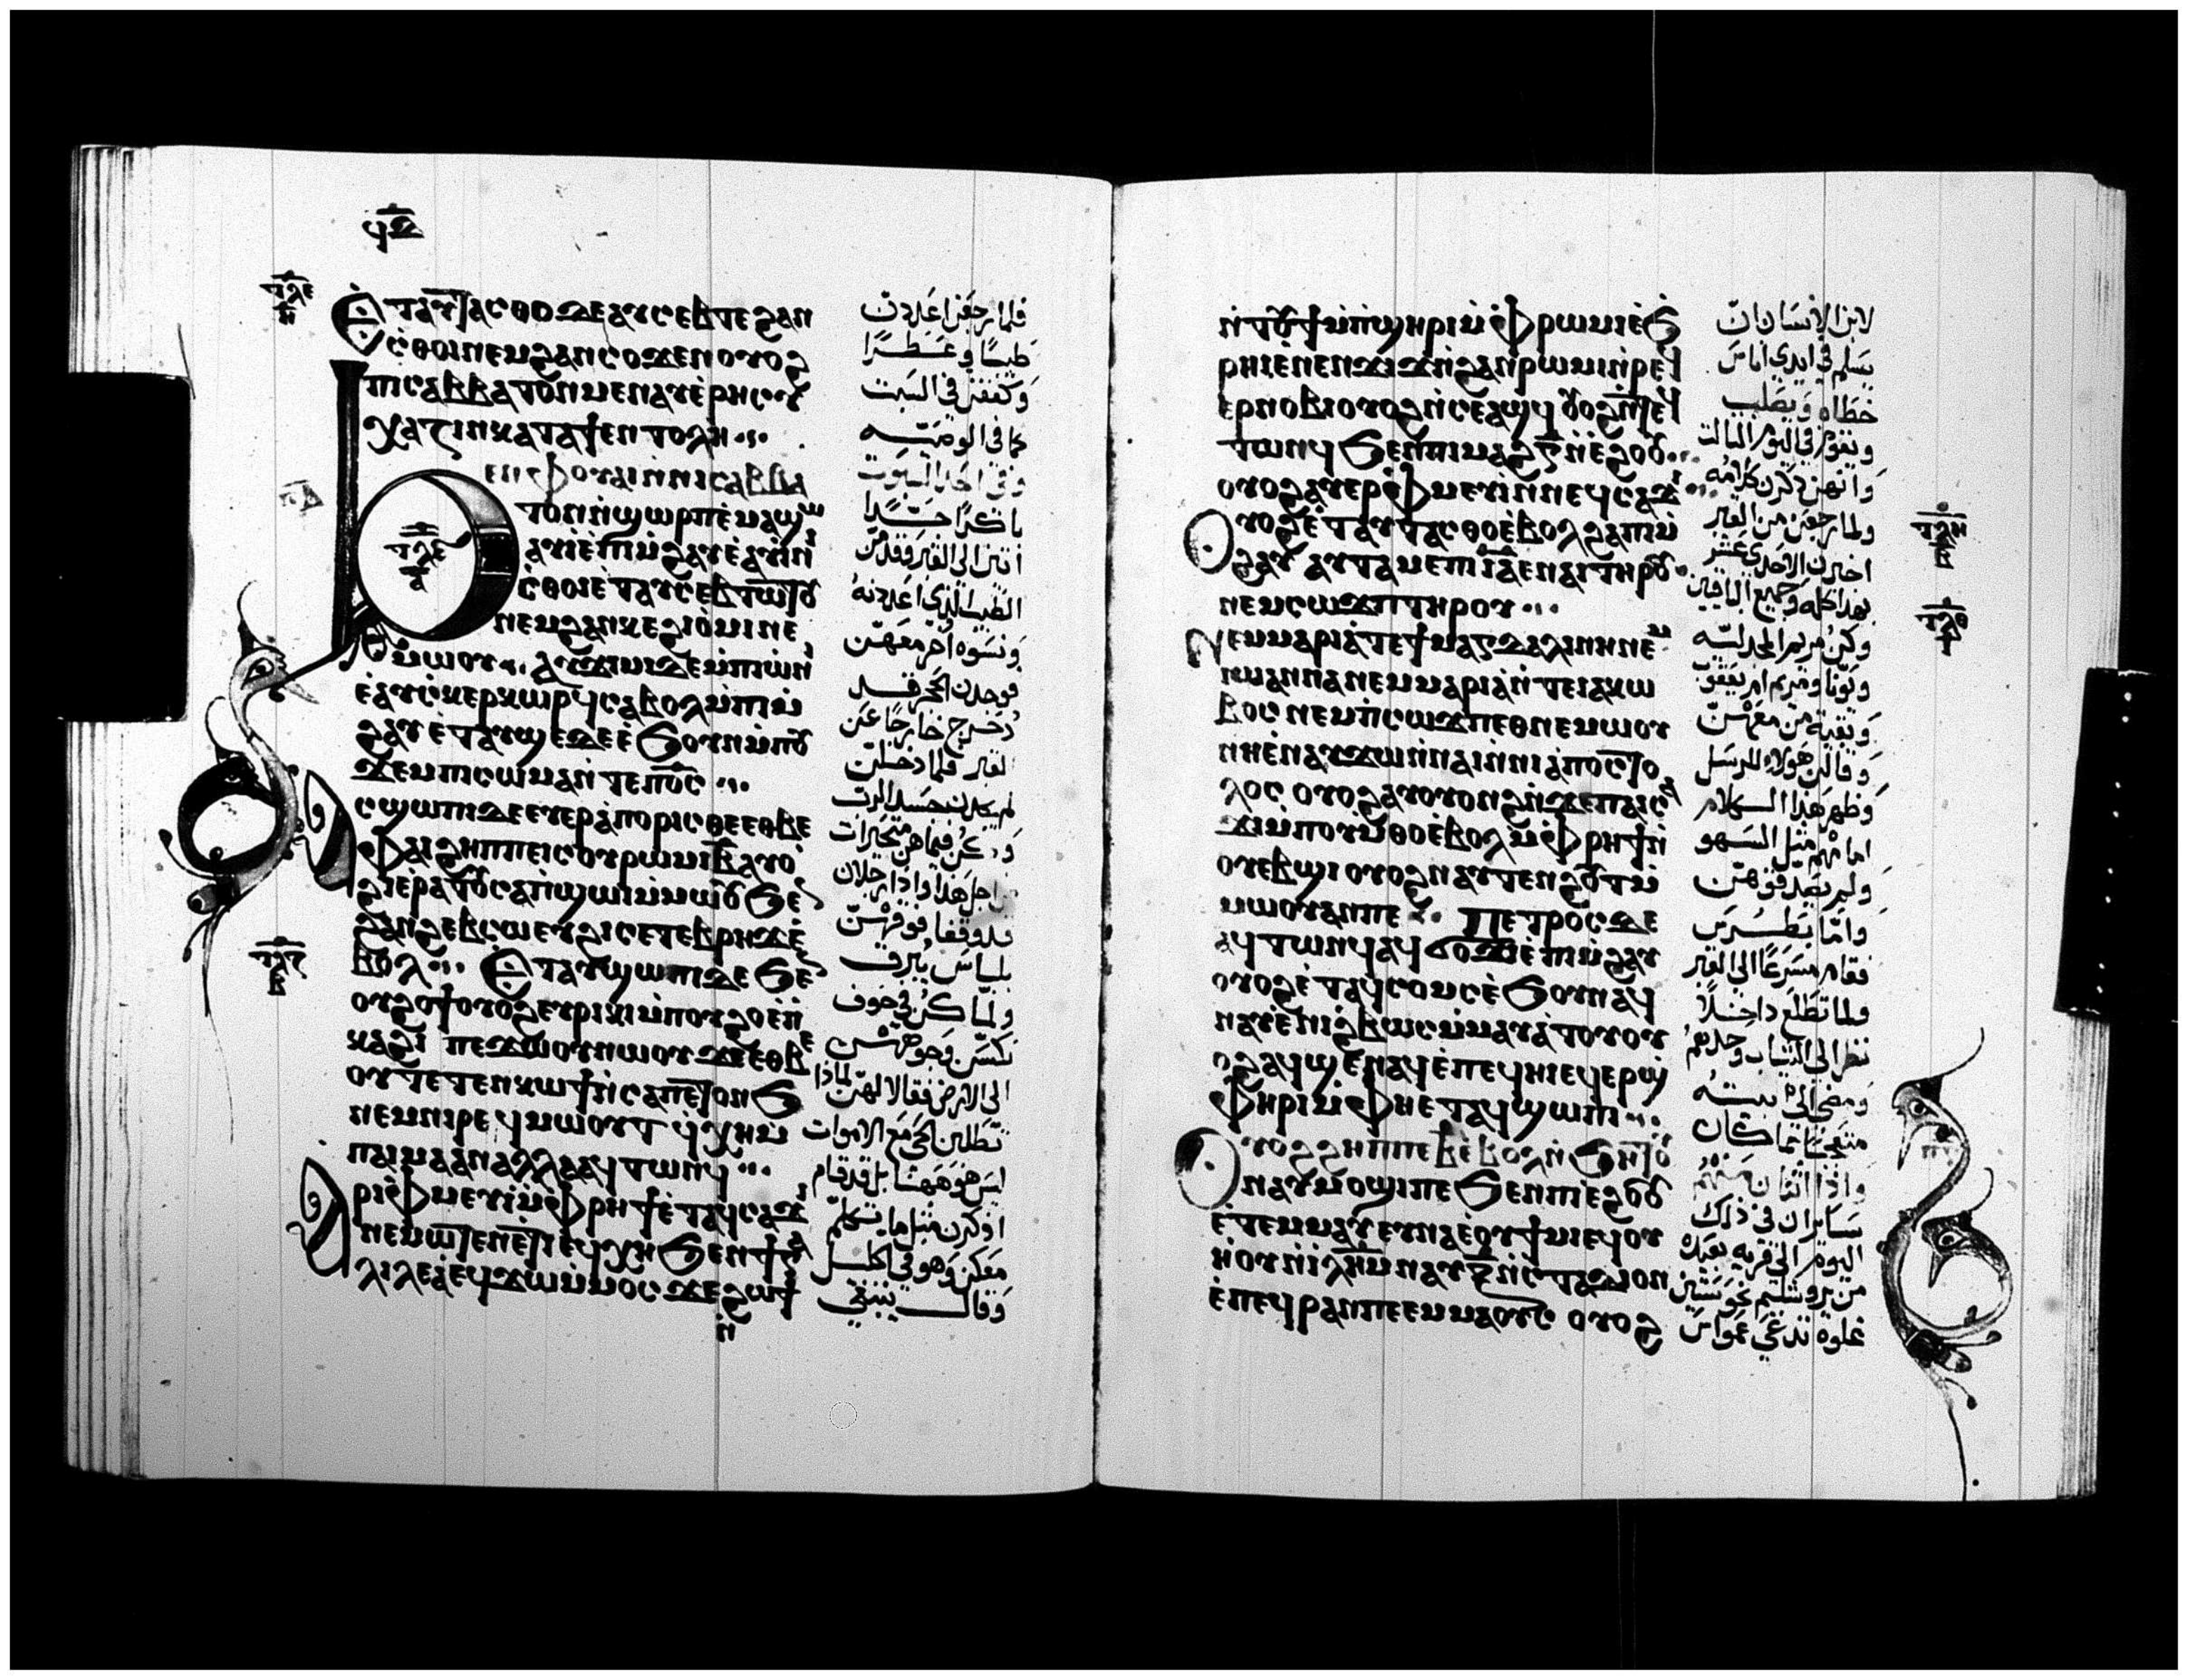 ϥⲇ
ⲧⲗⲉ
ⲏ
ⲉⲧⲁⲩⲧⲁⲥⲑⲟ ⲇⲉ ⲁⲩⲥⲉⲃⲧⲉ ϩⲁⲛ
ⲥ̀ⲑⲟⲓ ⲛⲉⲙ ϩⲁⲛⲥⲟϫⲉⲛ ⲟⲩⲟϩ
ⲡⲓⲥⲁⲃⲃⲁⲧⲟⲛ ⲙⲉⲛ ⲁⲩⲉ̀ⲣⲏⲥⲩ
ⲭⲁⲍⲓⲛ ⲕⲁⲧⲁ ϯⲉⲛⲧⲟⲗⲏ
ϧⲉⲛ ⲫⲟⲩⲁⲓ ⲛ̀ⲛⲓⲥⲁⲃⲃⲁ
ⲧⲟⲛ ⲛ̀ϣⲱⲣⲡ ⲉ̀ⲙⲁϣⲱ
ⲁⲩⲓ̀ ⲉ̀ⲡⲓⲙ̀ϩⲁⲩ ⲉ̀ⲁⲩⲓ̀ⲛⲓ ⲛ̀
ⲥ̀ⲑⲟⲓ ⲉ̀ⲧⲁⲩⲥⲉⲃⲧⲱⲧⲟⲩ
ⲛⲉⲙ ϩⲁⲛⲕⲉϩⲓⲟ̀ⲙⲓ ⲛⲉ
ⲙⲱⲟⲩ ⲁⲩϫⲓⲙⲓ ⲇⲉ ⲙ̀ⲡⲓⲱ̀ⲛⲓ
ⲉ̀ⲁⲩⲥ̀ⲕⲉⲣⲕⲱⲣϥ ⲥⲁⲃⲟⲗ ⲙ̀ⲡⲓⲙ̀
ϩⲁⲩ ⲉ̀ⲧⲁⲩϣⲉ ⲇⲉ ⲉ̀ϧⲟⲩⲛ ⲙ̀ⲡⲟⲩ
ϫⲉⲙ ⲡⲓⲥⲱⲙⲁ ⲛ̀ⲧⲉ ⲡⲟ̅ⲥ̅
ⲥϣⲱⲡⲓ ⲇⲉ ⲉⲩⲉⲣⲁ̀ⲡⲟⲣⲓⲥⲑⲉ ⲉⲑⲃⲉ
ⲫⲁⲓ ϩⲏⲡⲡⲉ ⲓⲥ ⲟⲩⲣⲱⲙⲓ ⲃ̅ ⲁⲩⲟ̀
ϩⲓ ⲉ̀ⲣⲁⲧⲟⲩ ⲥⲁⲡ̀ϣⲱⲓ ⲙ̀ⲙⲱⲟⲩ ϧⲉⲛ
ϩⲁⲛϩⲉⲃⲥⲱ ⲉⲩϩⲓⲥⲉⲧⲉⲃⲣⲏϫ ⲉ̀
ⲃⲟⲗ ⲉ̀ⲧⲁⲩϣⲱⲡⲓ ⲇⲉ ϧⲉⲛ
ⲟⲩϩⲟϯ ⲟⲩⲟϩ ⲉⲩⲣⲓⲕⲓ ⲙ̀ⲡⲟⲩϩⲟ ⲉ̀ⲡ̀
ⲕⲁϩⲓ ⲡⲉϫⲱⲟⲩ ⲛⲱⲟⲩ ϫⲉ ⲉⲑⲃⲉ
ⲟⲩ ⲧⲉⲧⲉⲛⲕⲱϯ ⲛ̀ⲥⲁ ⲡⲉⲧⲟⲛϧ
ⲛⲉⲙ ⲛⲓⲣⲉϥⲙⲱⲟⲩⲧ ϥ̀ⲭⲏ ⲙ̀
ⲡⲁⲓⲙⲁ ⲁⲛ ⲁⲗⲗⲁ ⲁϥⲧⲱⲛϥ
ⲁⲣⲓⲫ̀ⲙⲉⲩⲓ̀ ⲙ̀ⲫ̀ⲣⲏϯ ⲉ̀ⲧⲁϥⲥⲁϫⲓ
ⲛⲉⲙⲱⲧⲉⲛ ⲉ̀ⲧⲓ ⲉϥⲭⲏ ϧⲉⲛ ϯⲅⲁ
ⲗⲓⲗⲉⲁ̀ ⲉϥϫⲱ ⲙ̀ⲙⲟⲥ ϫⲉ ϩⲱϯ
ⲧⲗⲉ
ⲁ
ⲧⲗⲍ
ⲃ
فلما رجعن اعددن
طيبا وعطرا
وكففن في السبت
كما في الوصيه
وفي احد السبوت
باكرا جدا
اتين الى القبر فقدمن
الطيب الذي اعددنه
ونسوه اخر معهن
فوجدن الحجر قد
دحرج خارجا عن
القبر فلما دخلن
لم يجدن جسد الرب
وكن فيما هن متحيرات
من اجل هذا واذا رجلان
قد وقفا فوقهن
بلباس يبرق
ولما كن في خوف
نكسن وجوههن
الى الارض فقالا لهن لماذا
تطلبن الحي مع الاموات
ليس هو ههنا بل قد قام
اذكرن مثل ما تكلم
معكن وهو في الجليل
وقال ينبغي
ⲛ̀ⲧⲟⲩϯ ⲙ̀ⲡ̀ϣⲏⲣⲓ ⲙ̀ⲫ̀ⲣⲱⲙⲓ ⲉ̀ϧ
ⲣⲏⲓ ⲉ̀ⲛⲉⲛϫⲓϫ ⲛ̀ϩⲁⲛⲣⲱⲙⲓ ⲛ̀ⲣⲉϥ
ⲉⲣⲛⲟⲃⲓ ⲟⲩⲟϩ ⲛ̀ⲥⲉⲁϣϥ ⲟⲩⲟϩ ⲛ̀ⲧⲉϥ
ⲧⲱⲛϥ ϧⲉⲛ ⲡⲓⲙⲁϩ ⲅ̅ ⲛ̀ⲉ̀ϩⲟⲟⲩ
ⲟⲩⲟϩ ⲁⲩⲉⲣⲫ̀ⲙⲉⲩⲓ̀ ⲛ̀ⲛⲉϥⲥⲁϫⲓ
ⲟⲩⲟϩ ⲉ̀ⲧⲁⲩⲧⲁⲥⲑⲟ ⲉ̀ⲃⲟⲗ ϩⲁ ⲡⲓⲙ̀
ϩⲁⲩ ⲁⲩⲧⲁⲙⲉ ⲡⲓⲓ̅ⲁ̅ ⲉ̀ⲛⲁⲓ ⲧⲏⲣⲟⲩ
ⲛⲉⲙ ⲡ̀ⲥⲱϫⲡ ⲧⲏⲣⲟⲩ
ⲛⲉ ⲙⲁⲣⲓⲁ̀ ⲧⲉ ϯⲙⲁⲅⲇⲁⲗⲓⲛⲏ ⲛⲉⲙ
ⲓⲱⲁⲛⲛⲁ ⲛⲉⲙ ⲙⲁⲣⲓⲁ̀ ⲛ̀ⲧⲉ ⲓⲁⲕⲱ
ⲃⲟⲥ ⲛⲉⲙ ⲡ̀ⲥⲱϫⲡ ⲉⲑⲛⲉⲙⲱⲟⲩ
ⲛⲏ ⲉ̀ⲛⲁⲩϫⲱ ⲛ̀ⲛⲁⲓ ⲛ̀ⲛⲓⲁ̀ⲡⲟⲥⲧⲟ
ⲗⲟⲥ ⲟⲩⲟϩ ⲁⲩⲟⲩⲟⲛϩ ⲛ̀ϫⲉ ⲡⲁⲓⲥⲁ
ϫⲓ ⲙ̀ⲡⲟⲩⲙ̀ⲑⲟ ⲉ̀ⲃⲟⲗ ⲙ̀ⲫ̀ⲣⲏϯ ⲛ̀
ⲟⲩⲉⲃϣⲓ ⲟⲩⲟϩ ⲛⲁⲩⲧⲉⲛϩⲟⲩⲧ ⲙ̀
ⲙⲱⲟⲩ ⲁⲛ ⲡⲉ ⲡⲉⲧⲣⲟⲥ ⲇⲉ
ⲁϥⲧⲱⲛϥ ⲁϥϭⲟϫⲓ ⲉ̀ⲡⲓⲙ̀ϩⲁⲩ
ⲟⲩⲟϩ ⲉ̀ⲧⲁϥⲥⲟⲙⲥ ⲉ̀ϧⲟⲩⲛ ⲁϥ
ⲛⲁⲩ ⲉ̀ⲛⲓϩ̀ⲃⲱⲥ ⲙ̀ⲙⲁⲩⲁ̀ⲧⲟⲩ ⲟⲩ
ⲟϩ ⲁϥϣⲉⲛⲁϥ ⲉ̀ⲡⲉϥⲏⲓ ⲉϥⲉⲣϣ̀
ⲫⲏⲣⲓ ⲙ̀ⲫⲏⲉⲧⲁϥϣⲱⲡⲓ
ⲟⲩⲟϩ ϩⲏⲡⲡⲉ ⲃ̅ ⲉ̀ⲃⲟⲗ ⲛ̀ϧⲏⲧⲟⲩ
ⲛⲁⲩⲙⲟϣⲓ ⲡⲉ ϧⲉⲛ ⲡⲓⲉ̀ϩⲟⲟⲩ
ⲉ̀ⲧⲉⲙⲙⲁⲩ ⲉⲩⲛⲁ ⲉ̀ⲟⲩϯⲙⲓ ⲉϥⲟⲩ
ⲏⲟⲩ ⲛ̀ⲓⲗ̅ⲏ̅ⲙ̅ ⲛⲁⲩ ⲝ̅ ⲛ̀ⲥⲧⲁⲇⲓⲟⲛ
ⲉ̀ⲡⲉϥⲣⲁⲛ ⲡⲉ ⲉⲙⲙⲁⲟⲩⲥ ⲟⲩⲟϩ
ⲧⲗⲏ
ⲃ
ⲧⲗⲑ
ⲓ
لابن الانسان ان
يسلم في ايدي اناس
خطاه ويصلب
ويقوم في اليوم الثالث
وانهن ذكرن كلامه
ولما رجعن من القبر
اخبرن الاحدى عشر
بهذا كله وجميع الباقين
وكن مريم المجدليه
ويونا ومريم ام يعقوب
وبقيه من معهن
وقالن هولاء للرسل
وظهر هذا الكلام
امامهم مثل السهو
ولم يصدقوهن
واما بطرس
فقام مسرعا الى القبر
ولما تطلع داخلا
نظر الى الثياب وحدهم
ومضى الى بيته
متعجبا مما كان
واذا اثنان منهم
سايران في ذلك
اليوم الى قريه بعيده
من يروشليم نحو ستين
غلوه تدعى عمواس